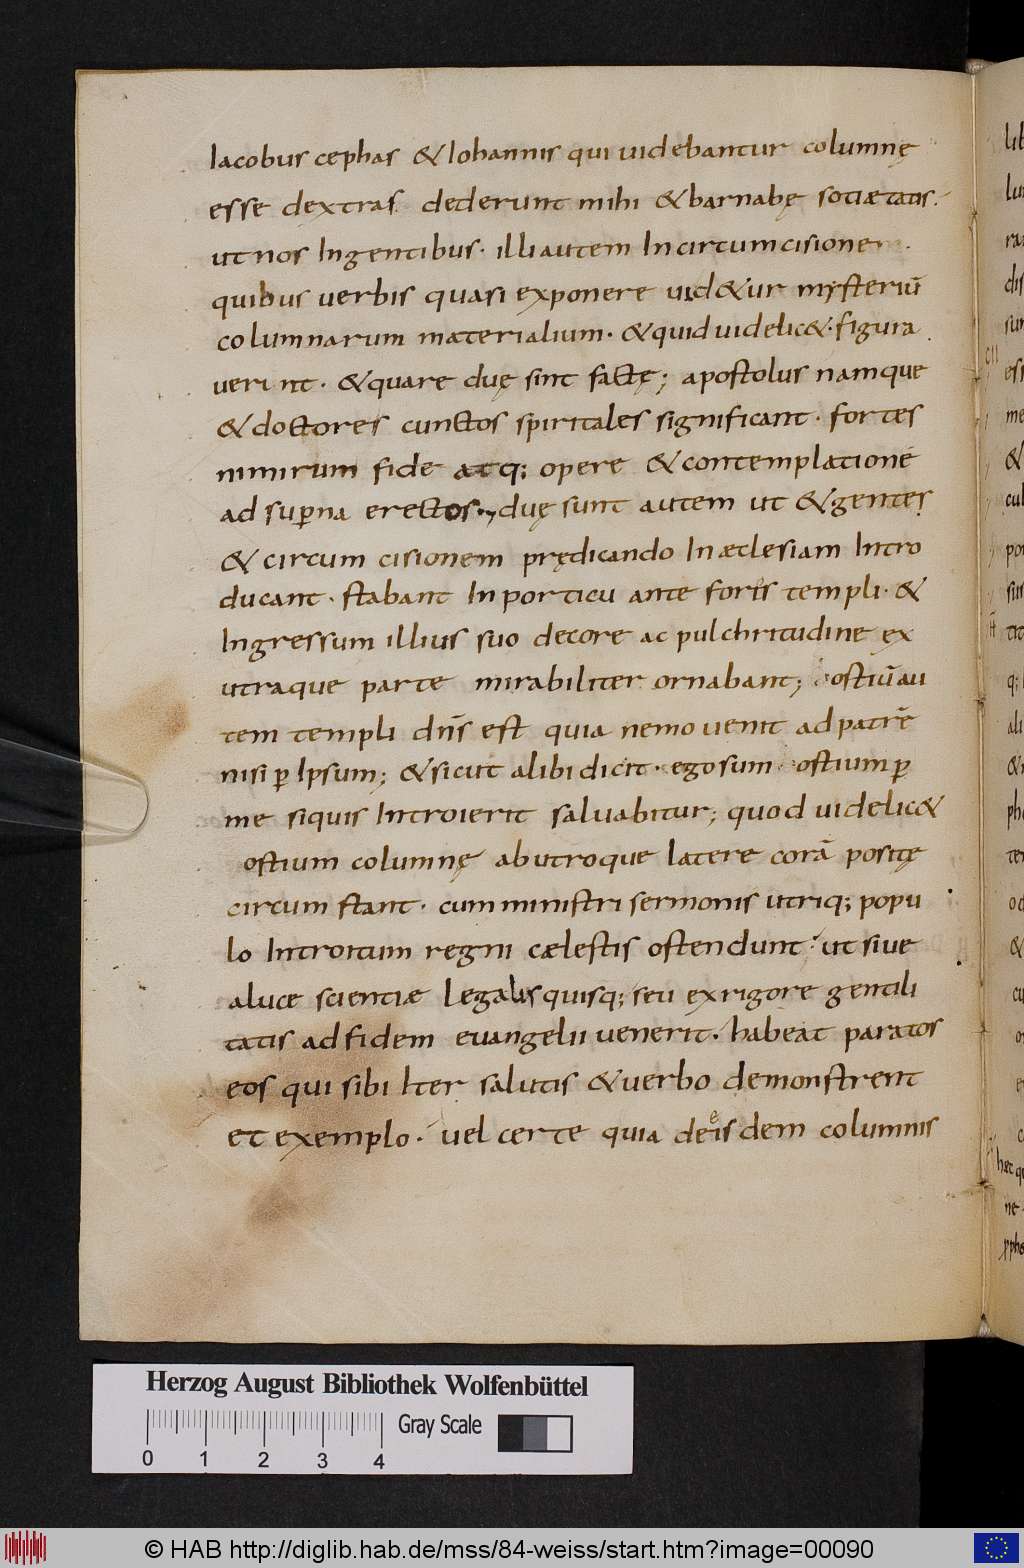 Iacobus cephas & Iohannis qui uidebantur columnę
esse dextras dederunt mihi & barnabę sociætatis.
ut nos In gentibus· illi autem In circumcisionem.
quibus uerbis quasi exponere uid&ur mysteriū
columnarum materialium· & quid uidelic&· figura
uerint· & quare duę sint factę; apostolus namque
& doctores cunctos spiritales significant· fortes
nimirum fide atq; opere & contemplatione
ad sup̱na erectos·, duę sunt autem ut & gentes
& circumcisionem prędicando In æclesiam Intro
ducant· stabant In porticu ante fores templi· &
Ingressum illius suo decore ac pulchritudine ex
utraque parte mirabiliter ornabant; ostiū au
tem templi dn̄s est quia nemo uenit ad patrē
nisi ꝑ Ipsum; & sicut alibi dicit· ego sum ostium ꝑ
me siquis Introierit saluabitur; quod uidelic&
ostium columnę ab utroque latere corā positę
circumstant· cum ministri sermonis utriq; popu
lo Introitum regni cælestis ostendunt· ut siue
a luce scientiæ legalis quisq; seu ex rigore gentili
tatis ad fidem euangelii uenerit· habeat paratos
eos qui sibi Iter salutis & uerbo demonstrent
et exemplo· uel certe quia de eisdem columnis
Herzog August Bibliothek Wolfenbüttel
Gray Scale
0 1 2 3 4
© HAB http://diglib.hab.de/mss/84-weiss/start.htm?image=00090